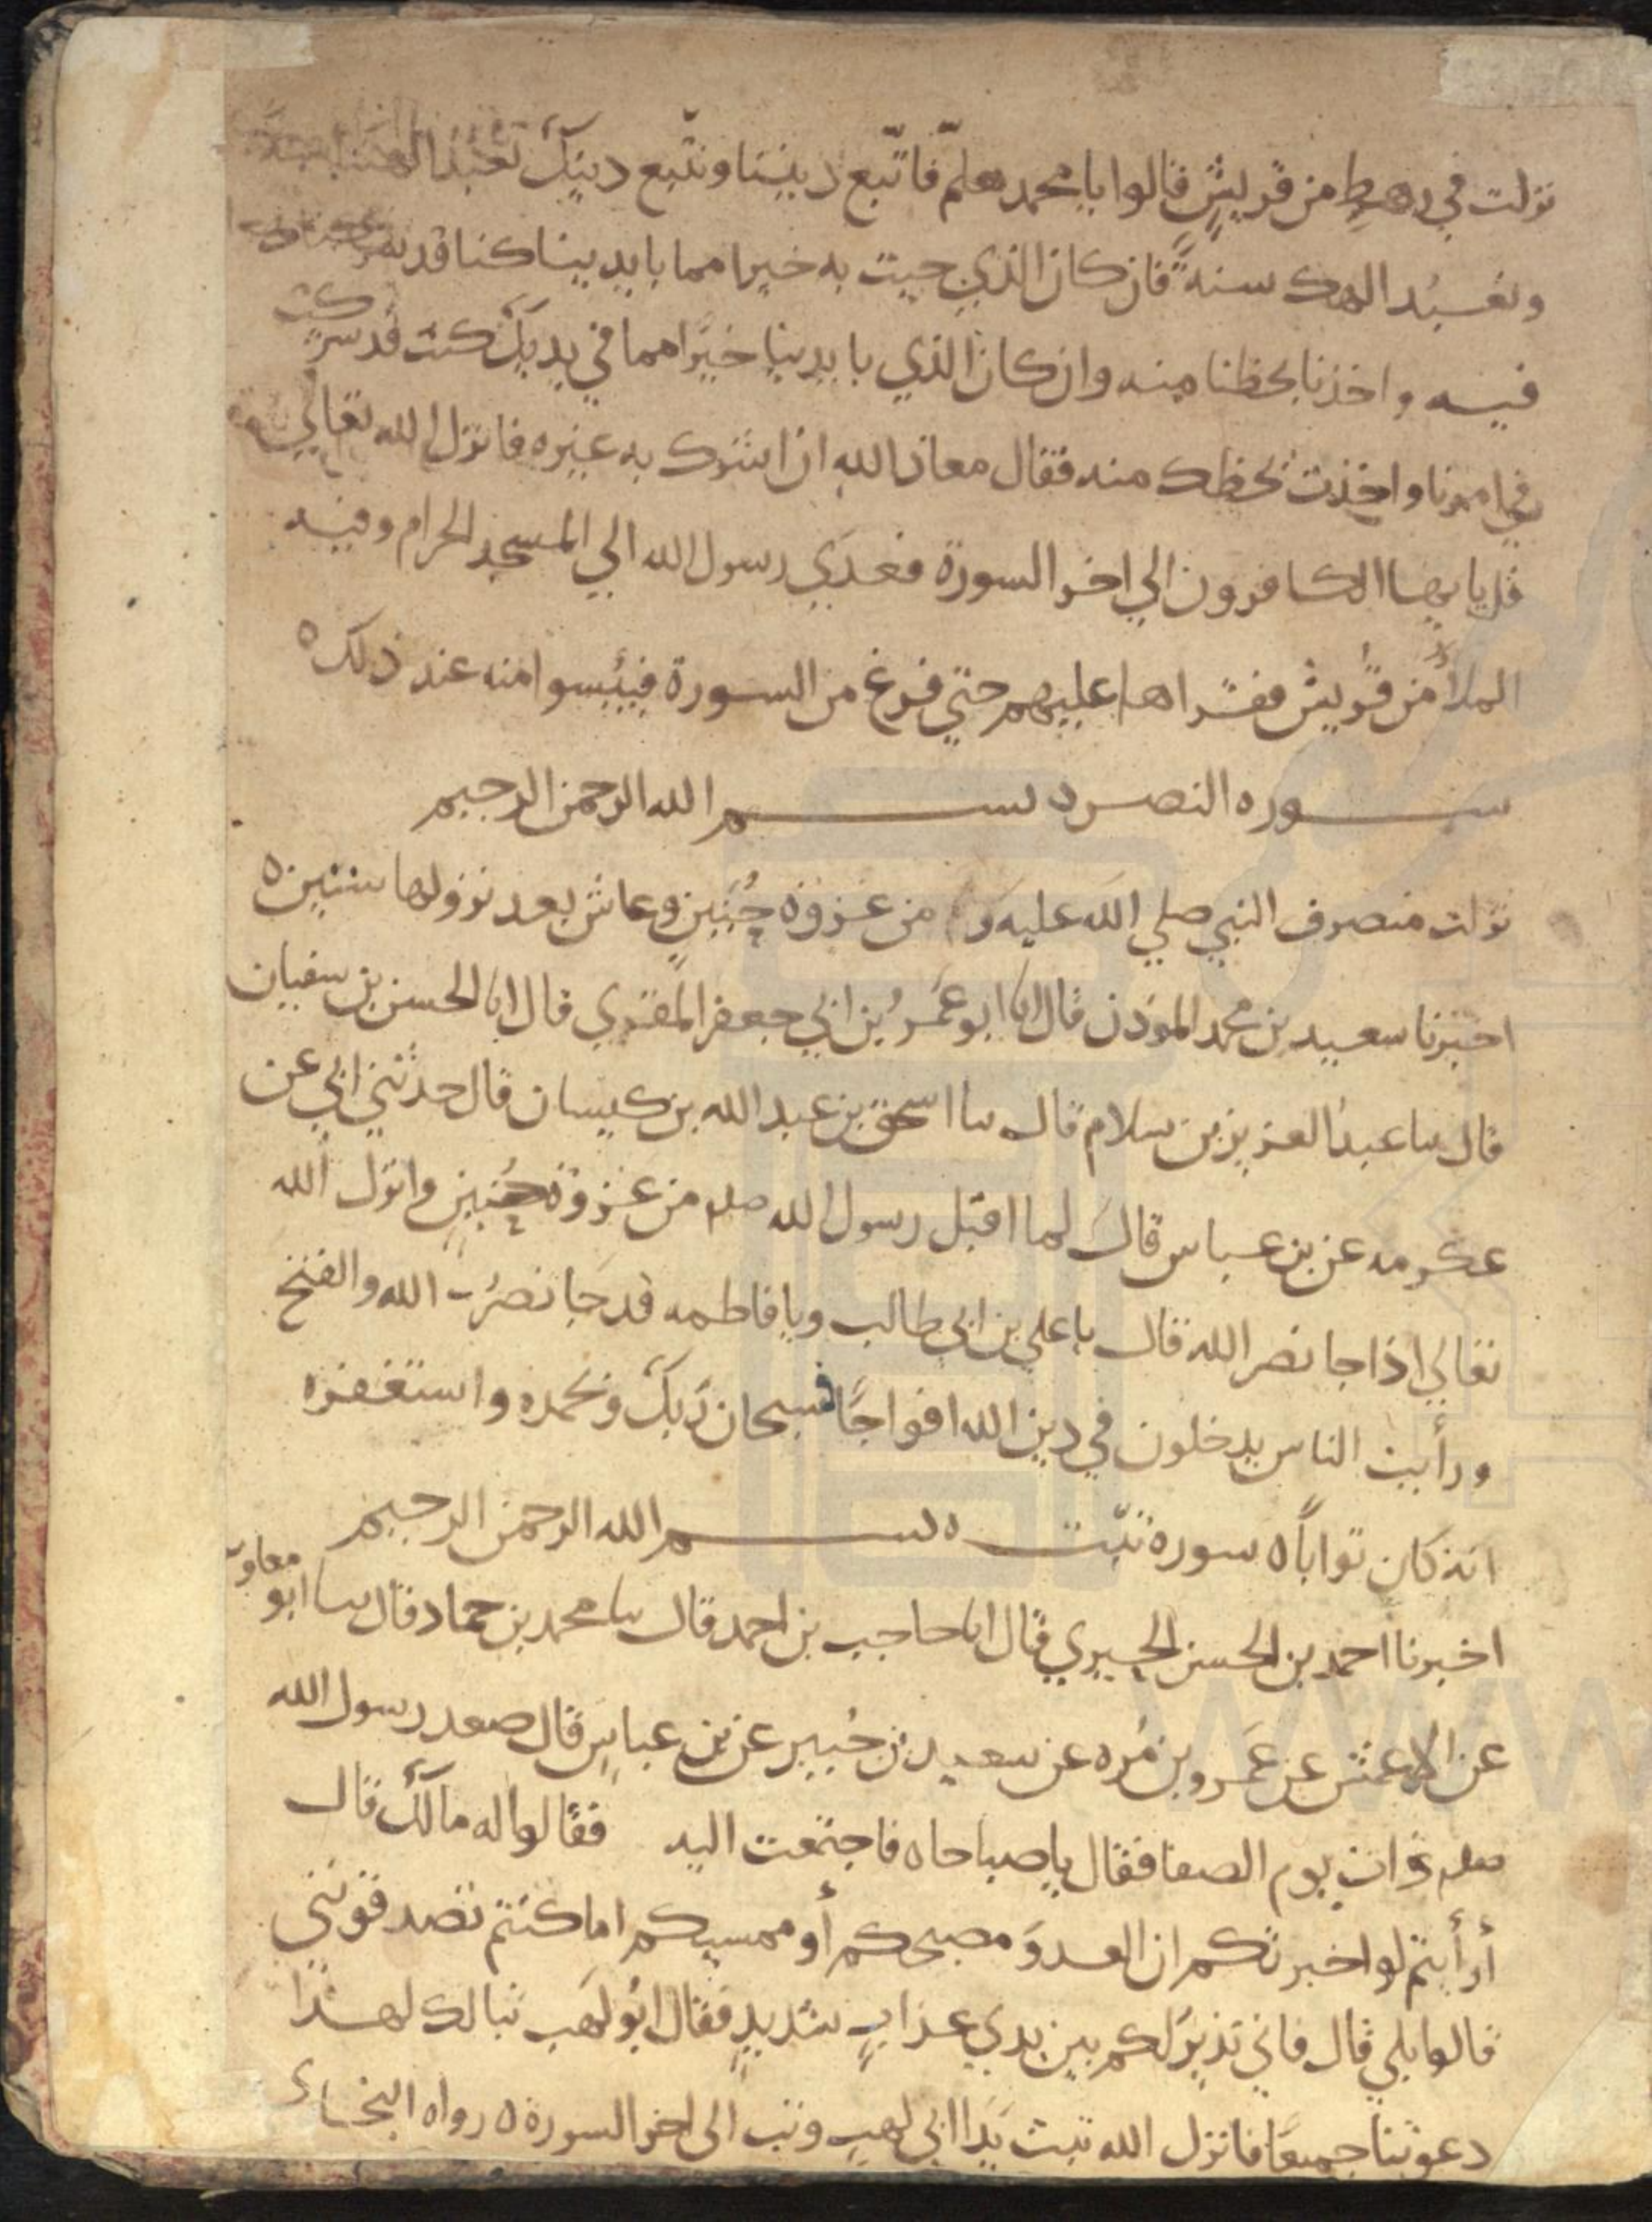 نزلت في رهط من قريش قالوا يا محمد هلمّ فاتّبع ديننا ونتّبع دينك تعبد الهتنا سنة
ونعبُد الهك سنةً فان كان الذي جيت به خيرا مما بايدينا كنا قد شركناك
فيه واخذنا بحظنا منه وان كان الذي بايدينا خيرًا مما في يديك كنت قد شركت
في امرنا واخذت بحظك منه فقال معاذ الله ان اشرك به غيره فانزل الله تعالي
قل يايها الكافرون الي اخر السورة فغدي رسول الله الي المسجد الحرام وفيه
الملأُ من قريش فقراها عليهم حتي فرغ من السورة فيئسوا منه عند ذلك ٥
سوره النصر ٥ بسم الله الرحمن الرحيم
نزلت منصرف النبي صلي الله عليه و من غزوة حُنَينٍ وعاش بعد نزولها سنتين ٥
اخبرنا سعيد بن محمد الموذن قال انا ابو عمَرُ بن ابي جعفر المقري قال انا الحسن بن سفيان
قال سا عبد العزيز بن سلام قال سا اسحق بن عبد الله بن كيسان قال حدثني ابي عن
عكرمه عن بن عباس قال لما اقبل رسول الله صلم من غزوة حُنينٍ وانزل الله
تعالي اذا جا نصر الله قال يا علي بن ابي طالب ويا فاطمه قد جَا نصرُ الله والفتح
ورأيت الناس يدخلون في دين الله افواجًا فسبحان ربك وبحمده واستغفره
انه كان توابًا ٥ سورة تبّت ٥ بسم الله الرحمن الرحيم
اخبرنا احمد بن الحسن الحيري قال انا حاجب بن احمد قال سا محمد بن حماد قال سا ابو معاوية
عن الاعمش عن عَمرو بن مُره عن سعيد بن جُبير عن بن عباسٍ قال صعد رسول الله
صلم ذات يوم الصفا فقال يا صباحاه فاجتمعت اليه فقالوا له مالك قال
أرأيتم لو اخبرتكم ان العدوَ مصبحكم أو ممسيكم اما كنتم تصدقوني
قالوا بلي قال فاني نذيرٌ لكم بين يدي عذابٍ شديدٍ فقال ابُو لهَب تبا لك لهذا
دعوتنا جميعًا فانزل الله تبت يَدا ابي لهبٍ وتب الى اخر السورة ٥ رواه البخاري